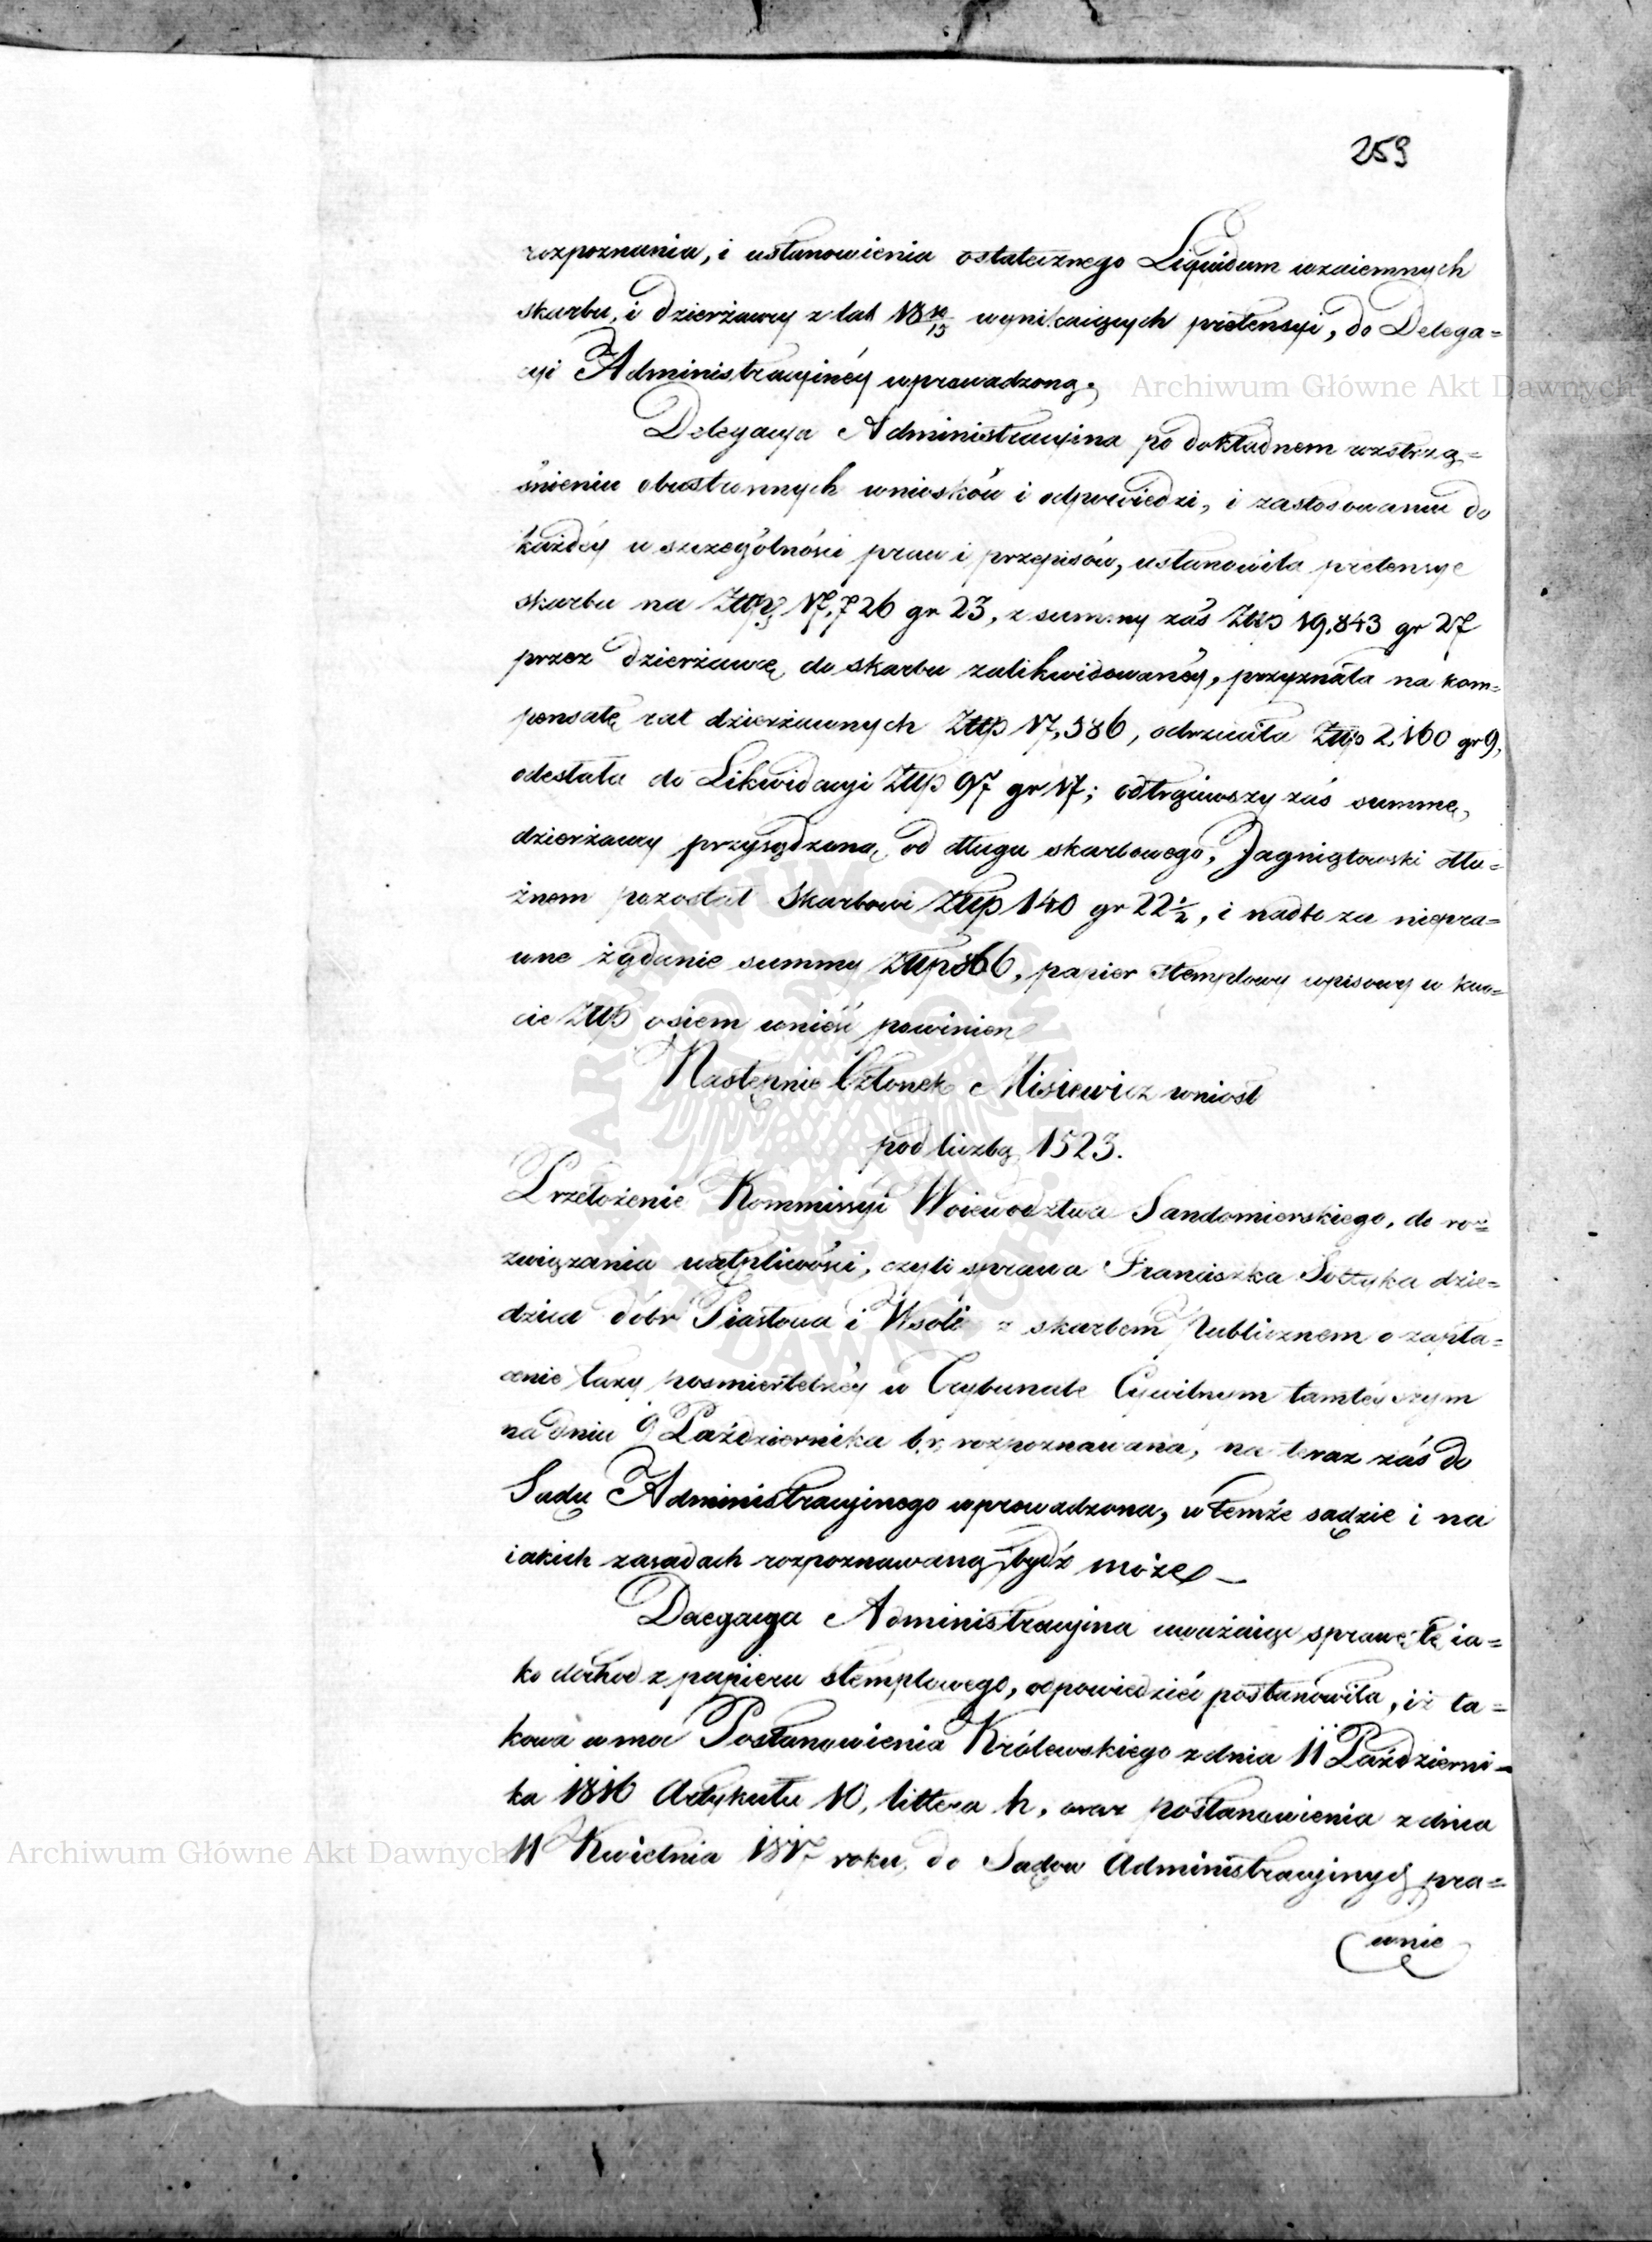 259
rozpoznania, i ustanowienia ostatecznego Liquidum wzaiemnych
skarbu, i dzierżawcy z lat 18 wynikaiących pretensyi, do Delega=
cyi Administracyinéy wprowadzoną.
Delegacya Administracyina po dokładnem roztrzą=
śnieniu obustronnych wniosków i odpowiedzi, i zastosowaniu do
każdéy w szczególności praw i przepisów, ustanowiła pretensye
skarbu na Złtp 17,726 gr 23, z summy zaś Złtp 19,843 gr 27
przez dzierżawcę do skarbu zalikwidowanéy, przyznała na kom=
pensatę rat dzierżawnych Złtp 17,586, odrzuciła Złtp 2,160 gr 9,
odesłała do Likwidacyi Złtp 97 gr 17; odtrąciwszy zaś summę
dzierżawcy przysądzoną od długu skarbowego, Jagniątowski dłu=
żnem pozostał Skarbowi Złtp 140 gr 22½, i nadto za niepra=
wne żądanie summy Złtp 866, papier stemplowy wpisowy w kwo=
cie Złtp osiem wnieść powinien
Następnie Członek Misiewicz wniósł
pod liczbą 1523.
Przełożenie Kommissyi Woiewództwa Sandomierskiego, do roz=
związania wątpliwości, czyli sprawa Franciszka Sołtyka dzie=
dzica dóbr Piastowa i Wsoli z skarbem Publicznem o zapła=
cenie taxy pośmiertelnéy w Trybunale Cywilnym tamtéyszym
na dniu 9 Października b.r. rozpoznawana, na teraz zaś do
Sądu Administracyinego wprowadzona, w temże sądzie i na
iakich zasadach rozpoznawaną bydź może
Delegacya Administracyina uważaiąc sprawę tę ia=
ko dochod z papieru stemplowego, odpowiedzieć postanowiła, iż ta=
kowa w moc Postanowienia Królewskiego z dnia 11 Październi=
ka 1816 Artykułu 10, littera h, oraz postanowienia z dnia
11 Kwietnia 1817 roku, do Sądów Administracyinych pra=
wnie
Archiwum Główne Akt Dawnych
Archiwum Główne Akt Dawnych